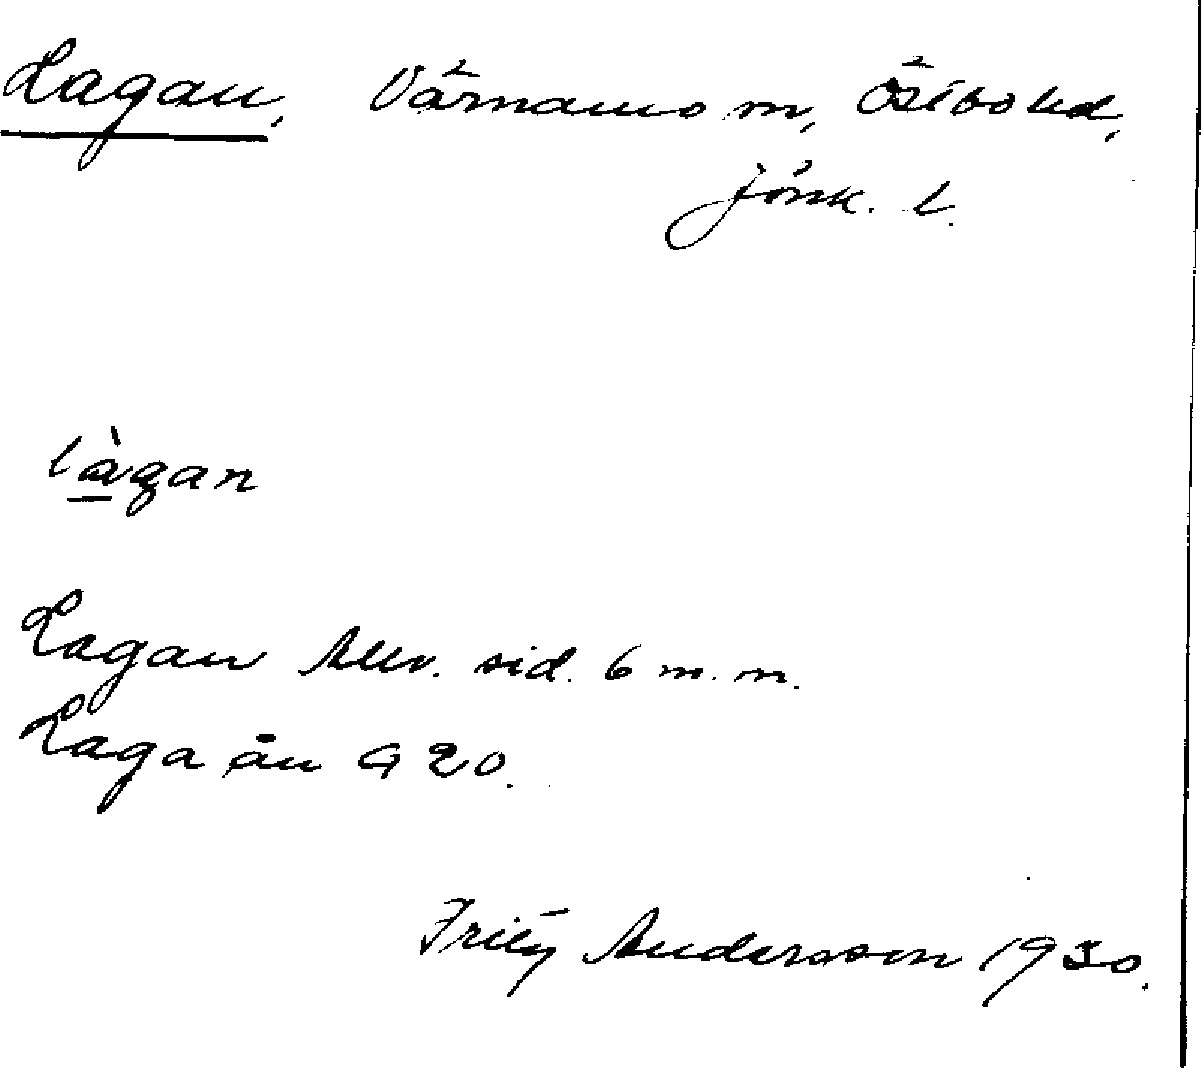 Lagan, Värnamo sn, Östbo hd,
Jönk. l.
làgan
Lagan Allv. sid. 6 m. m.
Laga ån G 20.
Fritz Andersson 1930.